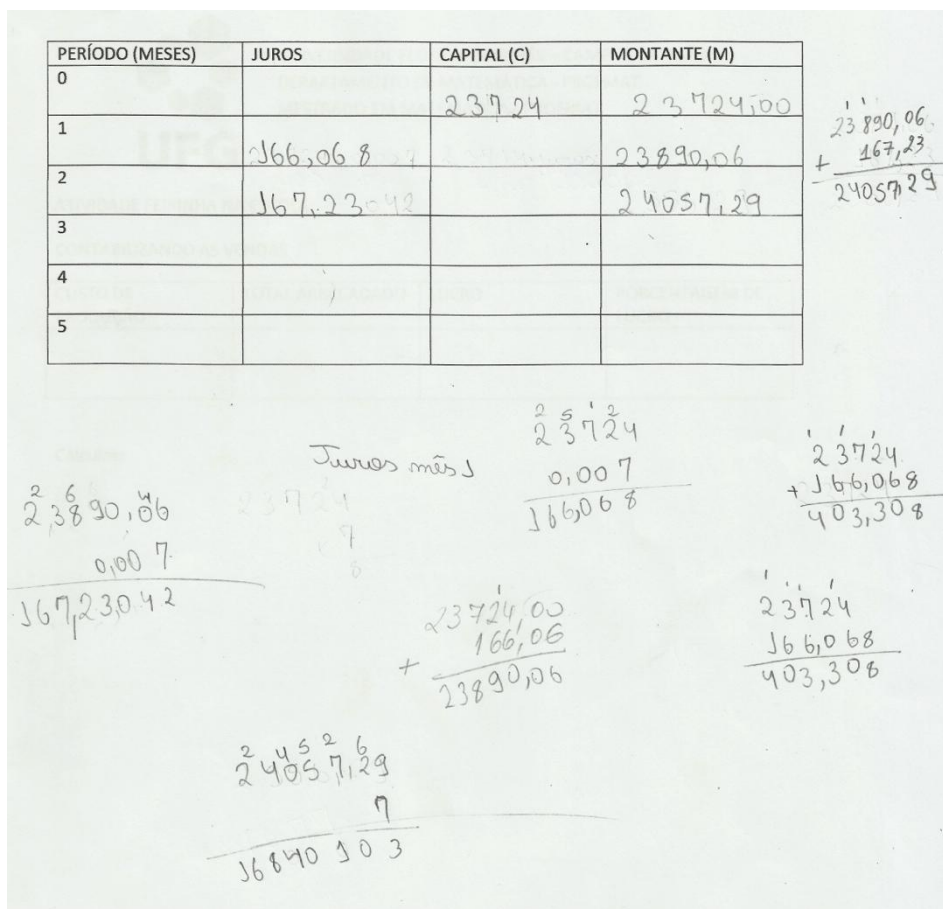 PERÍODO (MESES) JUROS CAPITAL (C) MONTANTE (M)
0 23724 23724,00
1 166,068 23890,06
2 167,23042 24057,29
3
4
5
23890,06
+ 167,23
24057,29
Juros mês 1
2 5 1 2
23724
0,007
166,068
1 1 1
23724
+ 166,068
403,308
2 6 4
23890,06
0,007
167,23,042
23724
7
8
1
23724,00
166,06
+
23890,06
23724
166,068
403,308
2 4 5 2 6
24057,29
7
16840103